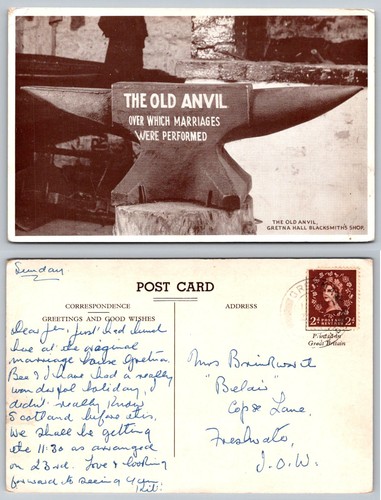 THE OLD ANVIL
OVER WHICH MARRIAGES
WERE PERFORMED
THE OLD ANVIL,
GRETNA HALL BLACKSMITH'S SHOP.
Sunday.
POST CARD
CORRESPONDENCE
GREETINGS AND GOOD WISHES
ADDRESS
Dear Jen, just had lunch
here at the original
marriage house Gretna.
Bee & I have had a really
wonderful holiday, I
didn't really know
Scotland before this.
We shall be getting
the 11:30 as arranged
on 23rd. Love & looking
forward to seeing you.
2d POSTAGE REVENUE 2d
Printed in
Great Britain
Mrs Brinkworth
"Belair"
Copse Lane,
Freshwater,
I.O.W.